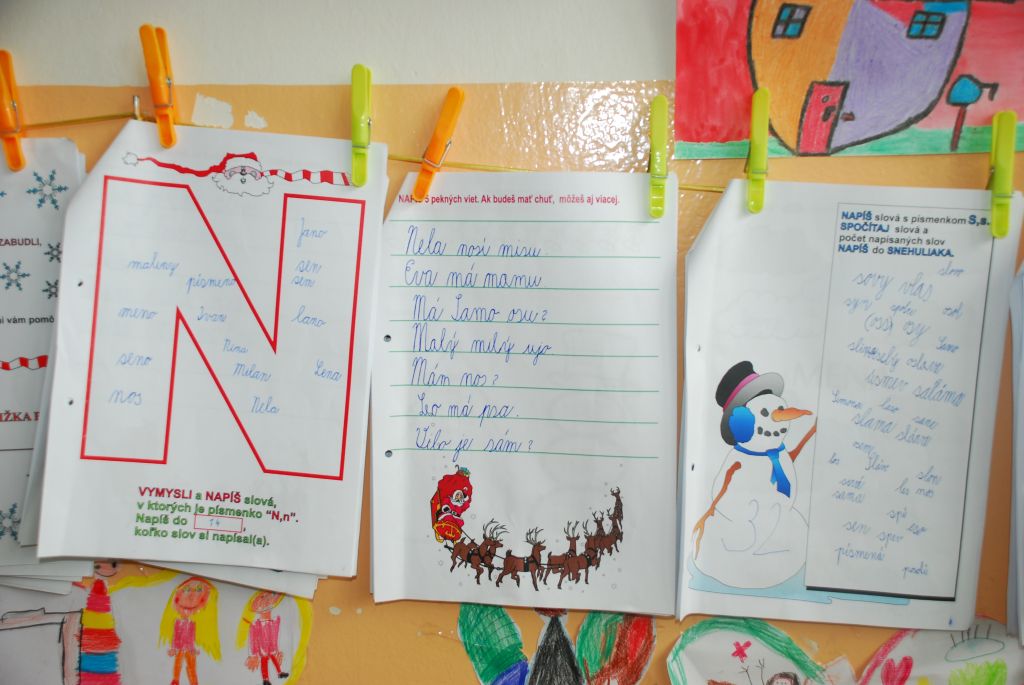 ZABUDLI,
ni vám pomô
IŽKA P
Jano
maliny
sen
písmeno
sen
meno
Ivan
lano
Nina
seno
Milan
Lena
nos
Nela
VYMYSLI a NAPÍŠ slová,
v ktorých je písmenko "N,n".
Napíš do 14,
koľko slov si napísal(a).
NAPÍŠ 5 pekných viet. Ak budeš mať chuť, môžeš aj viacej.
Nela nosí misu.
Eva má mamu
Má Samo osu?
Malý milý ujo.
Mám nos?
Leo má psa.
Vilo je sám?
NAPÍŠ slová s písmenkom S,s.
SPOČÍTAJ slová a
počet napísaných slov
NAPÍŠ do SNEHULIAKA.
slovo
sovy vlas
syr osol
osy
úsmev salámo
slama
slon
les nos
sama
sen
písmená
32